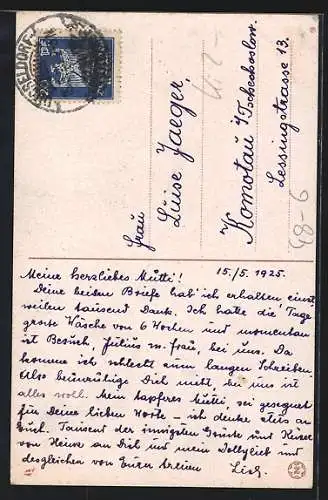 DÜSSELDORF
20
Frau
Luise Jaeger,
Komotau i/Tschechoslow.
Lessingstrasse 13.
48-6
15./5. 1925.
Meine herzliebes Mutti!
Deine beiden Briefe hab' ich erhalten einst-
weilen tausend Dank. Ich hatte die Tage
grosse Wäsche von 6 Wochen und momentan
ist Besuch, Julius m. Frau, bei uns. Da
komme ich schlecht zum langen Schreiben.
Also beunruhige Dich nicht, bei uns ist
alles voll. Mein tapferes Mutti, sei gesegnet
für Deine lieben Worte – ich denke stets an
Euch. Tausend der innigsten Grüsse und Küsse
von Heinz an Dich und mein Dollylieb und
desgleichen von Eurer treuen